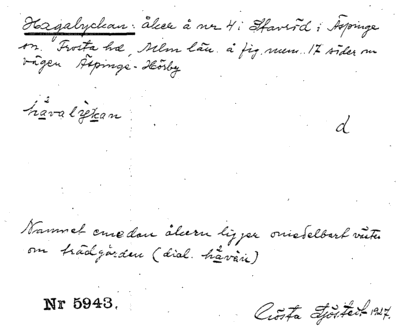 Hagalyckan: åker å nr 4 i Stavröd i Äspinge
sn. Frosta hd, Mlm län. å fig. num. 17 söder om
vägen Äspinge-Hörby
håvalykan
d
Namnet emedan åkern ligger omedelbart väster
om trädgården (dial. håvän)
Nr 5943.
Gösta Sjöstedt 1927.